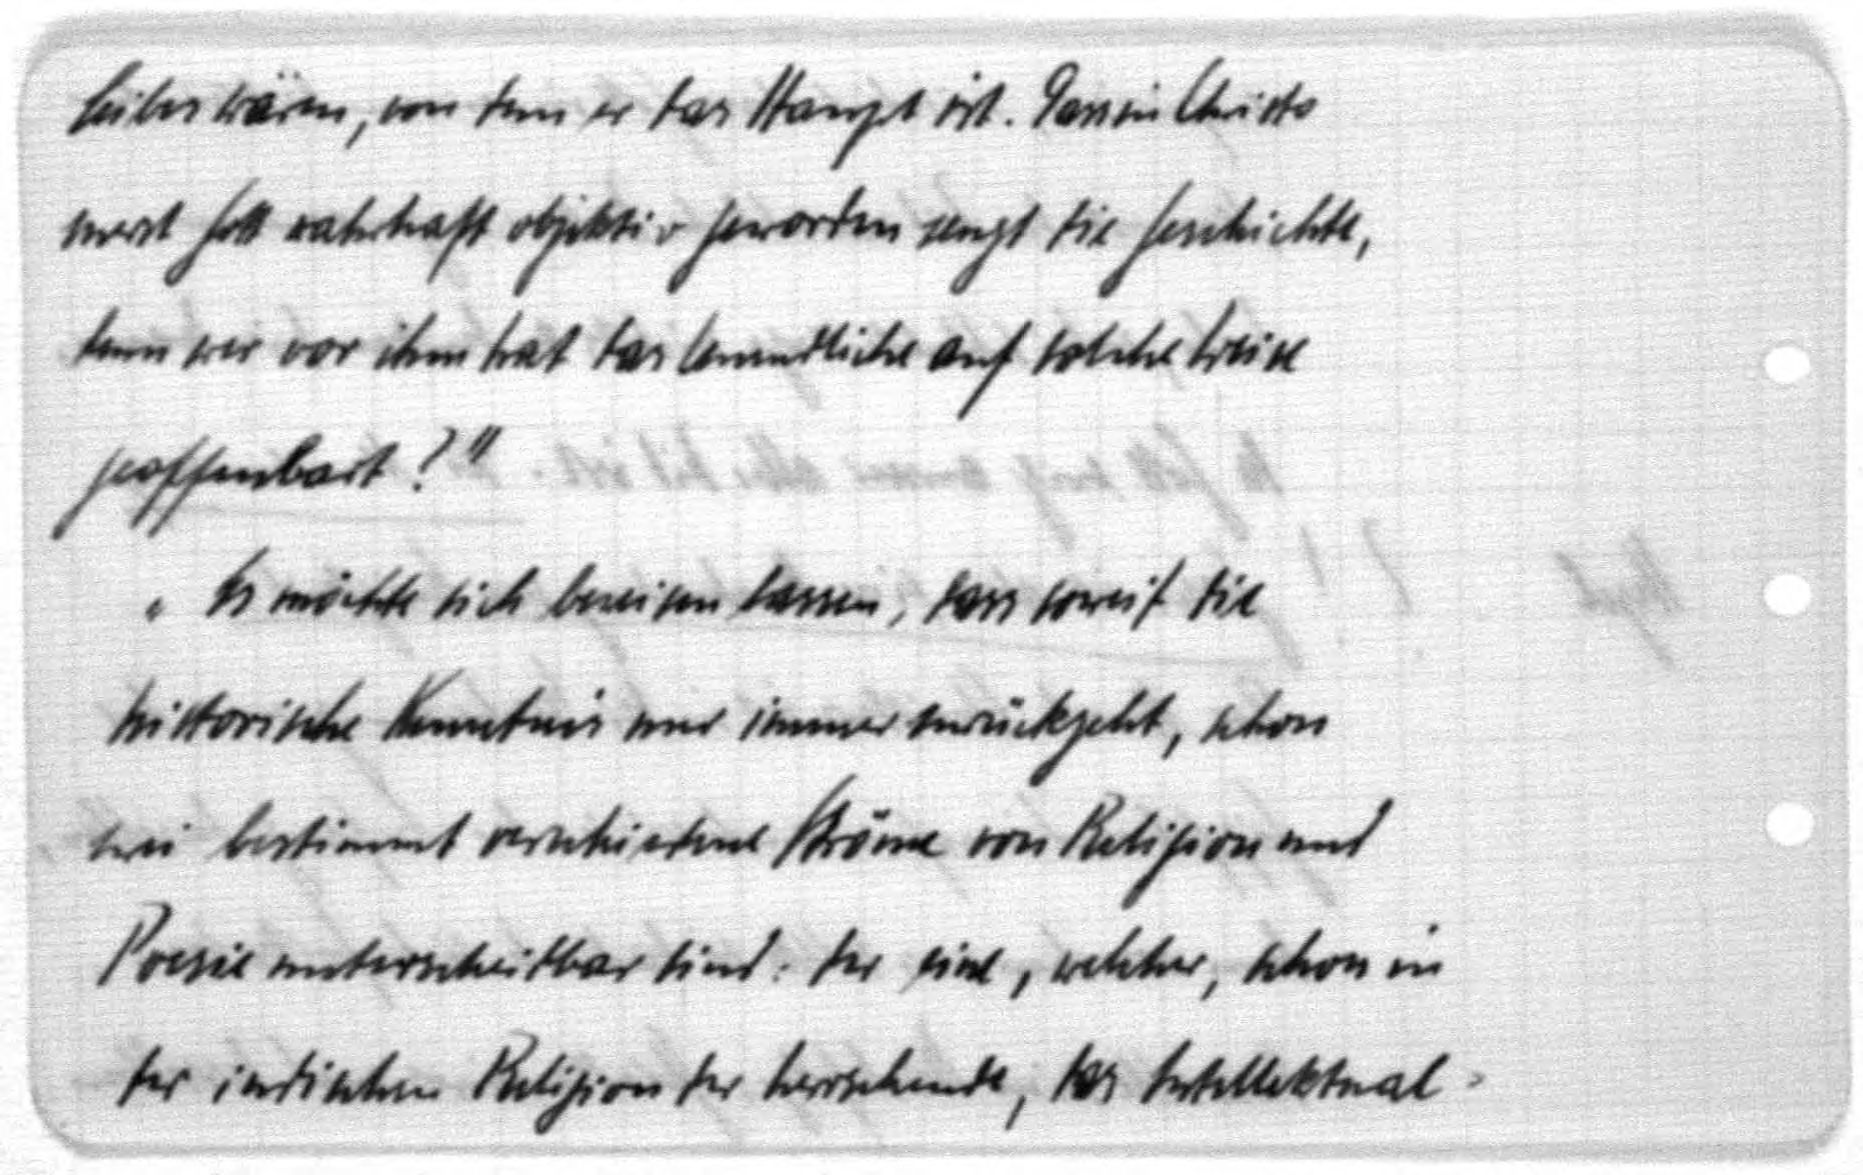 Leibes wären, von dem er das Haupt ist. Dass in Christo
zuerst Gott wahrhaft objektiv geworden zeugt die Geschichte,
denn wer vor ihm hat das Unendliche auf solche Weise
geoffenbart?"
" Es möchte sich beweisen lassen, dass soweit die
historische Kenntnis nur immer zurückgeht, schon
zwei bestimmt verschiedene Ströme von Religion und
Poesie unterscheidbar sind: der eine, welcher, schon in
der indischen Religion der herrschende, das Intellektual-